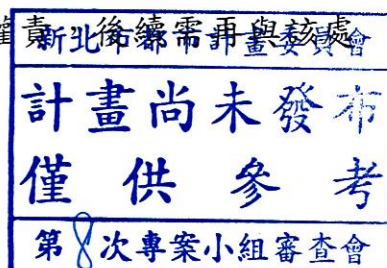 權責，後續需再與該處
新北市都市計畫委員會
計畫尚未發布
僅供參考
第8次專案小組審查會